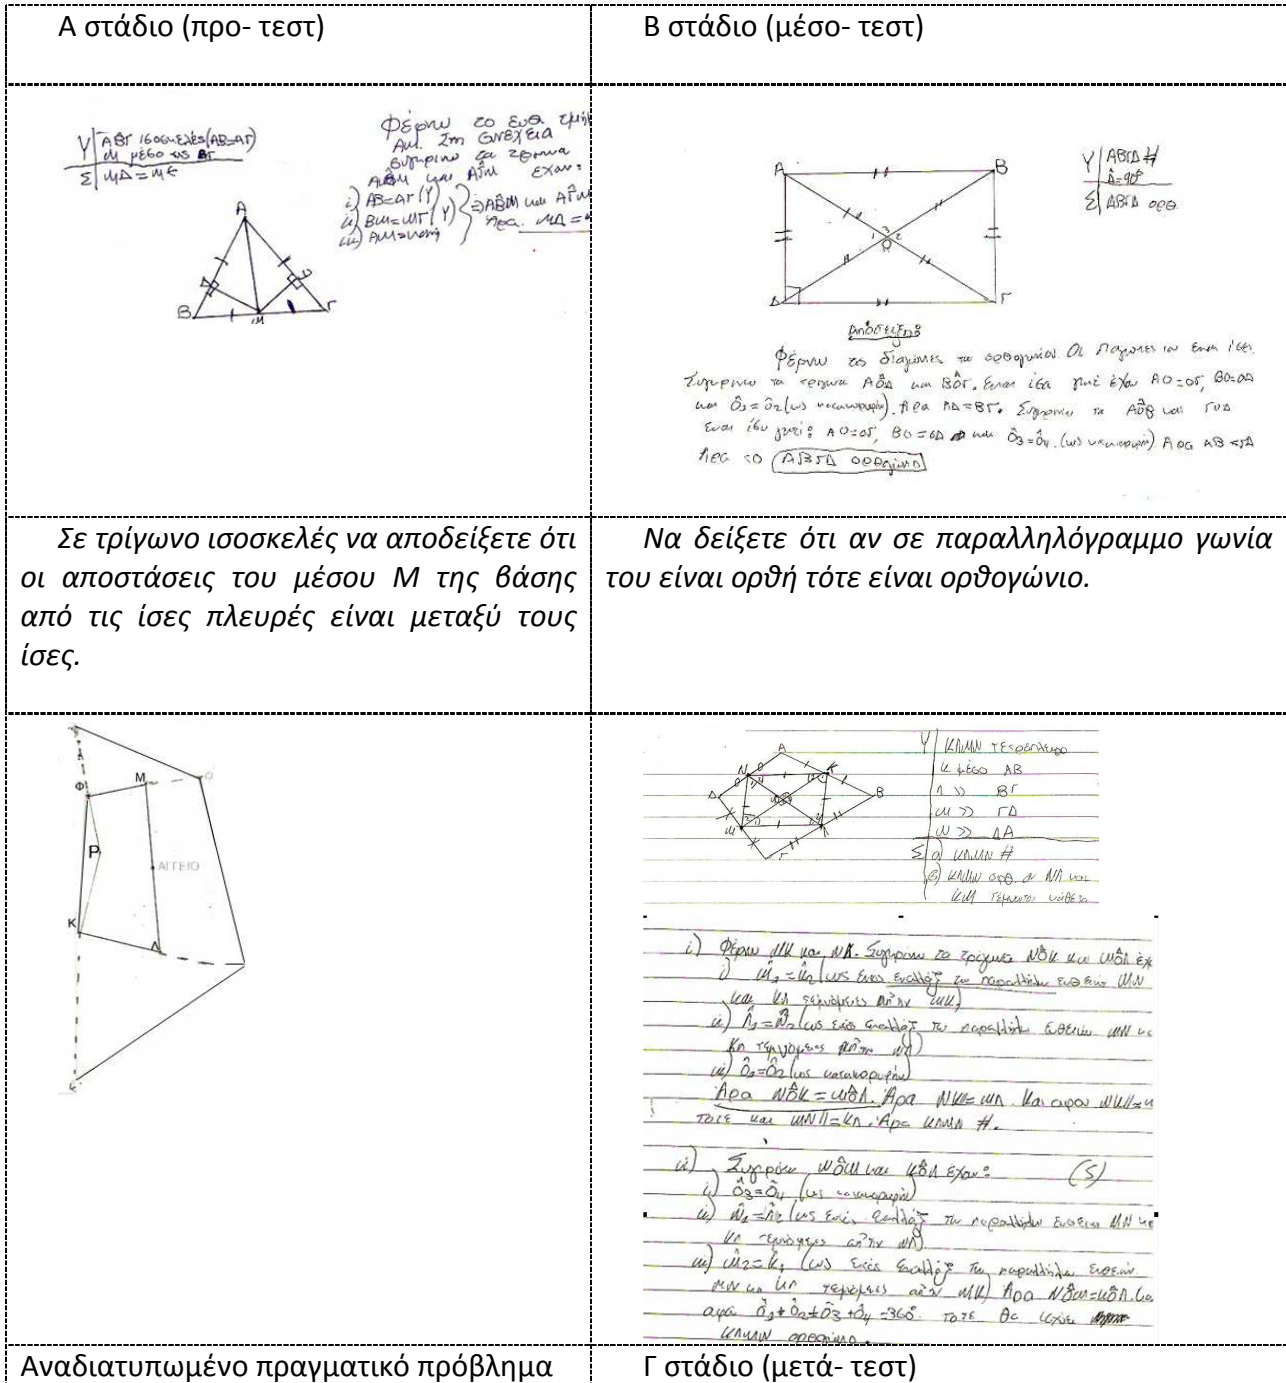 Α στάδιο (προ- τεστ)
Β στάδιο (μέσο- τεστ)
Υ ΑΒΓ ισοσκελές (ΑΒ=ΑΓ)
Μ μέσο της ΒΓ
Σ ΜΔ=ΜΕ
Φέρνω το ευθ. τμή
ΑΜ. Στη συνέχεια
συγκρίνω τα τρίγωνα
ΑΒΜ και ΑΓΜ έχουν:
i) ΑΒ=ΑΓ (Υ)
ii) ΒΜ=ΜΓ (Υ) ⇒ ΑΒΜ και ΑΓΜ
iii) ΑΜ=κοινή Άρα ΜΔ=
Α
Δ
Β
Μ
Γ
Υ ΑΒΓΔ #
Δ̂=90°
Σ ΑΒΓΔ ορθ.
Α
Β
1 3 2
Ο
Δ
Γ
Απόδειξη:
Φέρνω τις διαγώνιες του ορθογωνίου. Οι διαγώνιες του είναι ίσες.
Συγκρίνω τα τρίγωνα ΑΟ̂Δ και ΒΟ̂Γ. Είναι ίσα γιατί έχουν ΑΟ=ΟΓ, ΒΟ=ΟΔ
και Ô₁=Ô₂ (ως κατακορυφήν). Άρα ΑΔ=ΒΓ. Συγκρίνω τα ΑΟ̂Β και ΓΟΔ
είναι ίσα γιατί: ΑΟ=ΟΓ, ΒΟ=ΟΔ και Ô₃=Ô₄ (ως κατακορυφήν). Άρα ΑΒ=ΓΔ
Άρα το ΑΒΓΔ ορθογώνιο
Σε τρίγωνο ισοσκελές να αποδείξετε ότι
οι αποστάσεις του μέσου Μ της βάσης
από τις ίσες πλευρές είναι μεταξύ τους
ίσες.
Να δείξετε ότι αν σε παραλληλόγραμμο γωνία
του είναι ορθή τότε είναι ορθογώνιο.
Φ
Μ
Ρ
ΑΓΓΕΙΟ
Κ
Λ
Α
Ν
Κ
Δ
Β
Μ
Λ
Γ
Υ ΚΛΜΝ τετράπλευρο
Κ μέσο ΑΒ
Λ >> ΒΓ
Μ >> ΓΔ
Ν >> ΔΑ
Σ α) ΚΛΜΝ #
β) ΚΛΜΝ ορθ. αν ΝΛ και
ΚΜ τέμνονται κάθετα
i) Φέρνω ΜΚ και ΝΛ. Συγκρίνω τα τρίγωνα ΝΟ̂Κ και ΜΟ̂Λ έχ
i) Μ̂₁=Κ̂₂ (ως εντός εναλλάξ των παραλλήλων ευθειών ΜΝ
και ΚΛ τεμνόμενες απ'την ΜΚ)
ii) Λ̂₁=Ν̂₂ (ως εντός εναλλάξ των παραλλήλων ευθειών ΜΝ κ
ΚΛ τεμνόμενες απ'την ΝΛ)
iii) Ô₁=Ô₂ (ως κατακορυφήν)
Άρα ΝΟ̂Κ=ΜΟ̂Λ. Άρα ΝΚ=ΜΛ. Και αφού ΝΚ//=
τότε και ΜΝ//=ΚΛ. Άρα ΚΛΜΝ #.
ii) Συγκρίνω ΝΟ̂Μ και ΚΟ̂Λ έχουν: (5)
i) Ô₃=Ô₄ (ως κατακορυφήν)
ii) Ν̂₁=Λ̂₂ (ως εντός εναλλάξ των παραλλήλων ευθειών ΜΝ κ
ΚΛ τεμνόμενες απ'την ΝΛ)
iii) Μ̂₂=Κ₁ (ως εντός εναλλάξ των παραλλήλων ευθειών
ΜΝ και ΚΛ τεμνόμενες απ'την ΜΚ) Άρα ΝΟ̂Μ=ΚΟ̂Λ.
αφού Ô₁+Ô₂+Ô₃+Ô₄=360° τότε θα ισχύει
ΚΛΜΝ ορθογώνιο.
Αναδιατυπωμένο πραγματικό πρόβλημα
Γ στάδιο (μετά- τεστ)